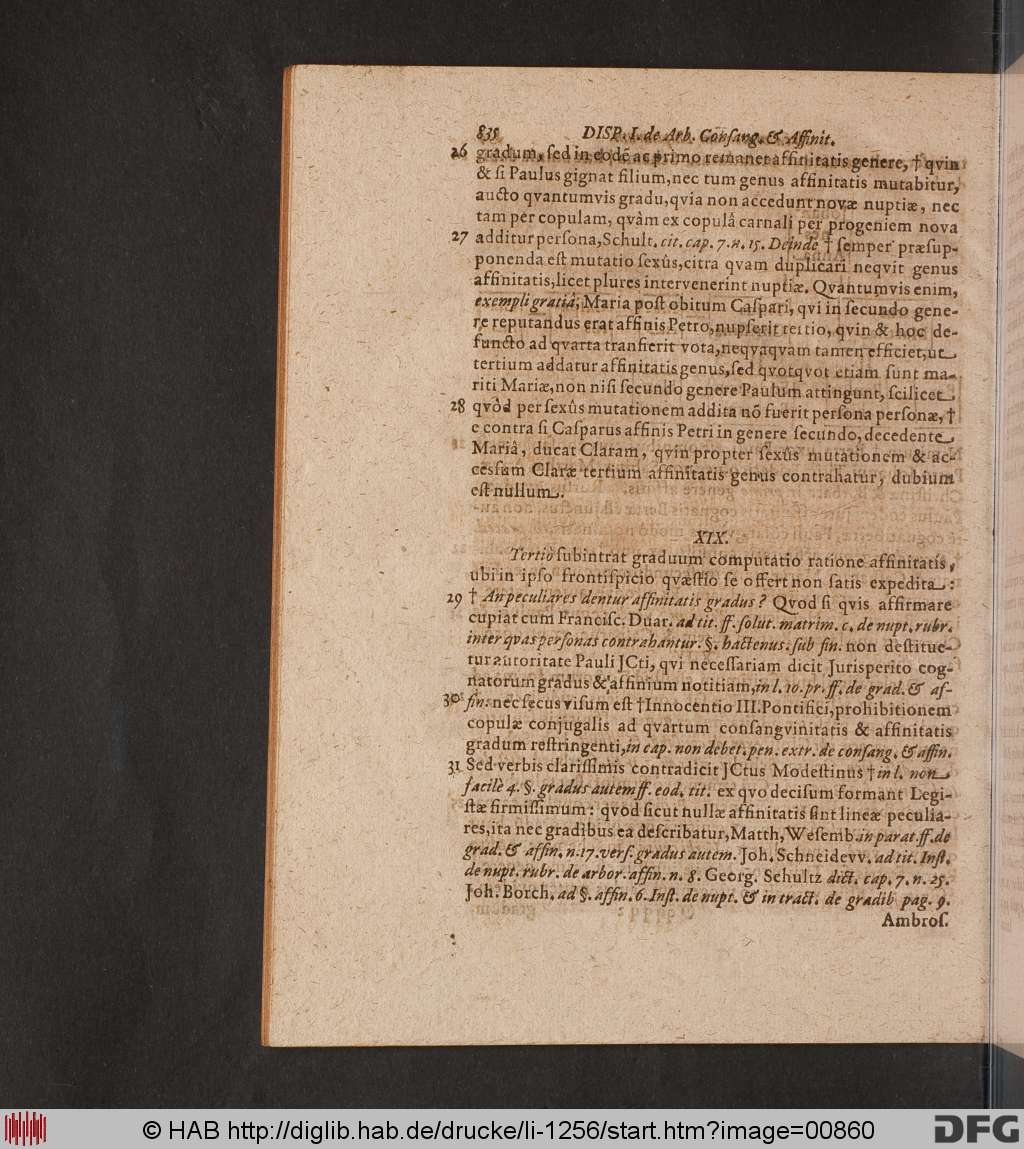 835 DISP. I. de Arb. Conſang. & Affinit.
26 gradum, ſed in eodē ac primo remanet affinitatis genere, † qvin
& ſi Paulus gignat filium, nec tum genus affinitatis mutabitur,
aucto qvantumvis gradu, qvia non accedunt novæ nuptiæ, nec
tam per copulam, qvàm ex copulâ carnali per progeniem nova
27 additur perſona, Schult. cit. cap. 7. n. 15. Deinde † ſemper præſup-
ponenda eſt mutatio ſexûs, citra qvam duplicari neqvit genus
affinitatis, licet plures intervenerint nuptiæ. Qvantumvis enim,
exempli gratiâ, Maria poſt obitum Caſpari, qvi in ſecundo gene-
re reputandus erat affinis Petro, nupſerit tertio, qvin & hoc de-
functo ad qvarta tranſierit vota, neqvaqvam tamen efficiet, ut
tertium addatur affinitatis genus, ſed qvotqvot etiam ſunt ma-
riti Mariæ, non niſi ſecundo genere Paulum attingunt, ſcilicet
28 qvôd per ſexûs mutationem addita nō fuerit perſona perſonæ, †
e contra ſi Caſparus affinis Petri in genere ſecundo, decedente
Mariâ, ducat Claram, qvin propter ſexûs mutationem & ac-
ceſſum Claræ tertium affinitatis genus contrahatur, dubium
eſt nullum.
XIX.
Tertiò ſubintrat graduum computatio ratione affinitatis,
ubi in ipſo frontiſpicio qvæſtio ſe offert non ſatis expedita:
29 † An peculiares dentur affinitatis gradus? Qvod ſi qvis affirmare
cupiat cum Franciſc. Duar. ad tit. ff. ſolut. matrim. c. de nupt. rubr.
inter qvas perſonas contrahantur. §. hactenus. ſub fin. non deſtitue-
tur autoritate Pauli JCti, qvi neceſſariam dicit Jurisperito cog-
natorum gradus & affinium notitiam, in l. 10. pr. ff. de grad. & af-
30 fin: nec ſecus viſum eſt † Innocentio III. Pontifici, prohibitionem
copulæ conjugalis ad qvartum conſangvinitatis & affinitatis
gradum reſtringenti, in cap. non debet. pen. extr. de conſang. & affin.
31 Sed verbis clariſſimis contradicit JCtus Modeſtinus † in l. non
facilè 4. §. gradus autem ff. eod. tit. ex qvo deciſum formant Legi-
ſtæ firmiſſimum: qvod ſicut nullæ affinitatis ſint lineæ peculia-
res, ita nec gradibus ea deſcribatur, Matth. Weſemb. in parat. ff. de
grad. & affin. n. 17. verſ. gradus autem. Joh. Schneidevv. ad tit. Inſt.
de nupt. rubr. de arbor. affin. n. 8. Georg. Schultz dict. cap. 7. n. 25.
Joh. Borch. ad §. affin. 6. Inſt. de nupt. & in tract. de gradib pag. 9.
Ambroſ.
© HAB http://diglib.hab.de/drucke/li-1256/start.htm?image=00860
DFG